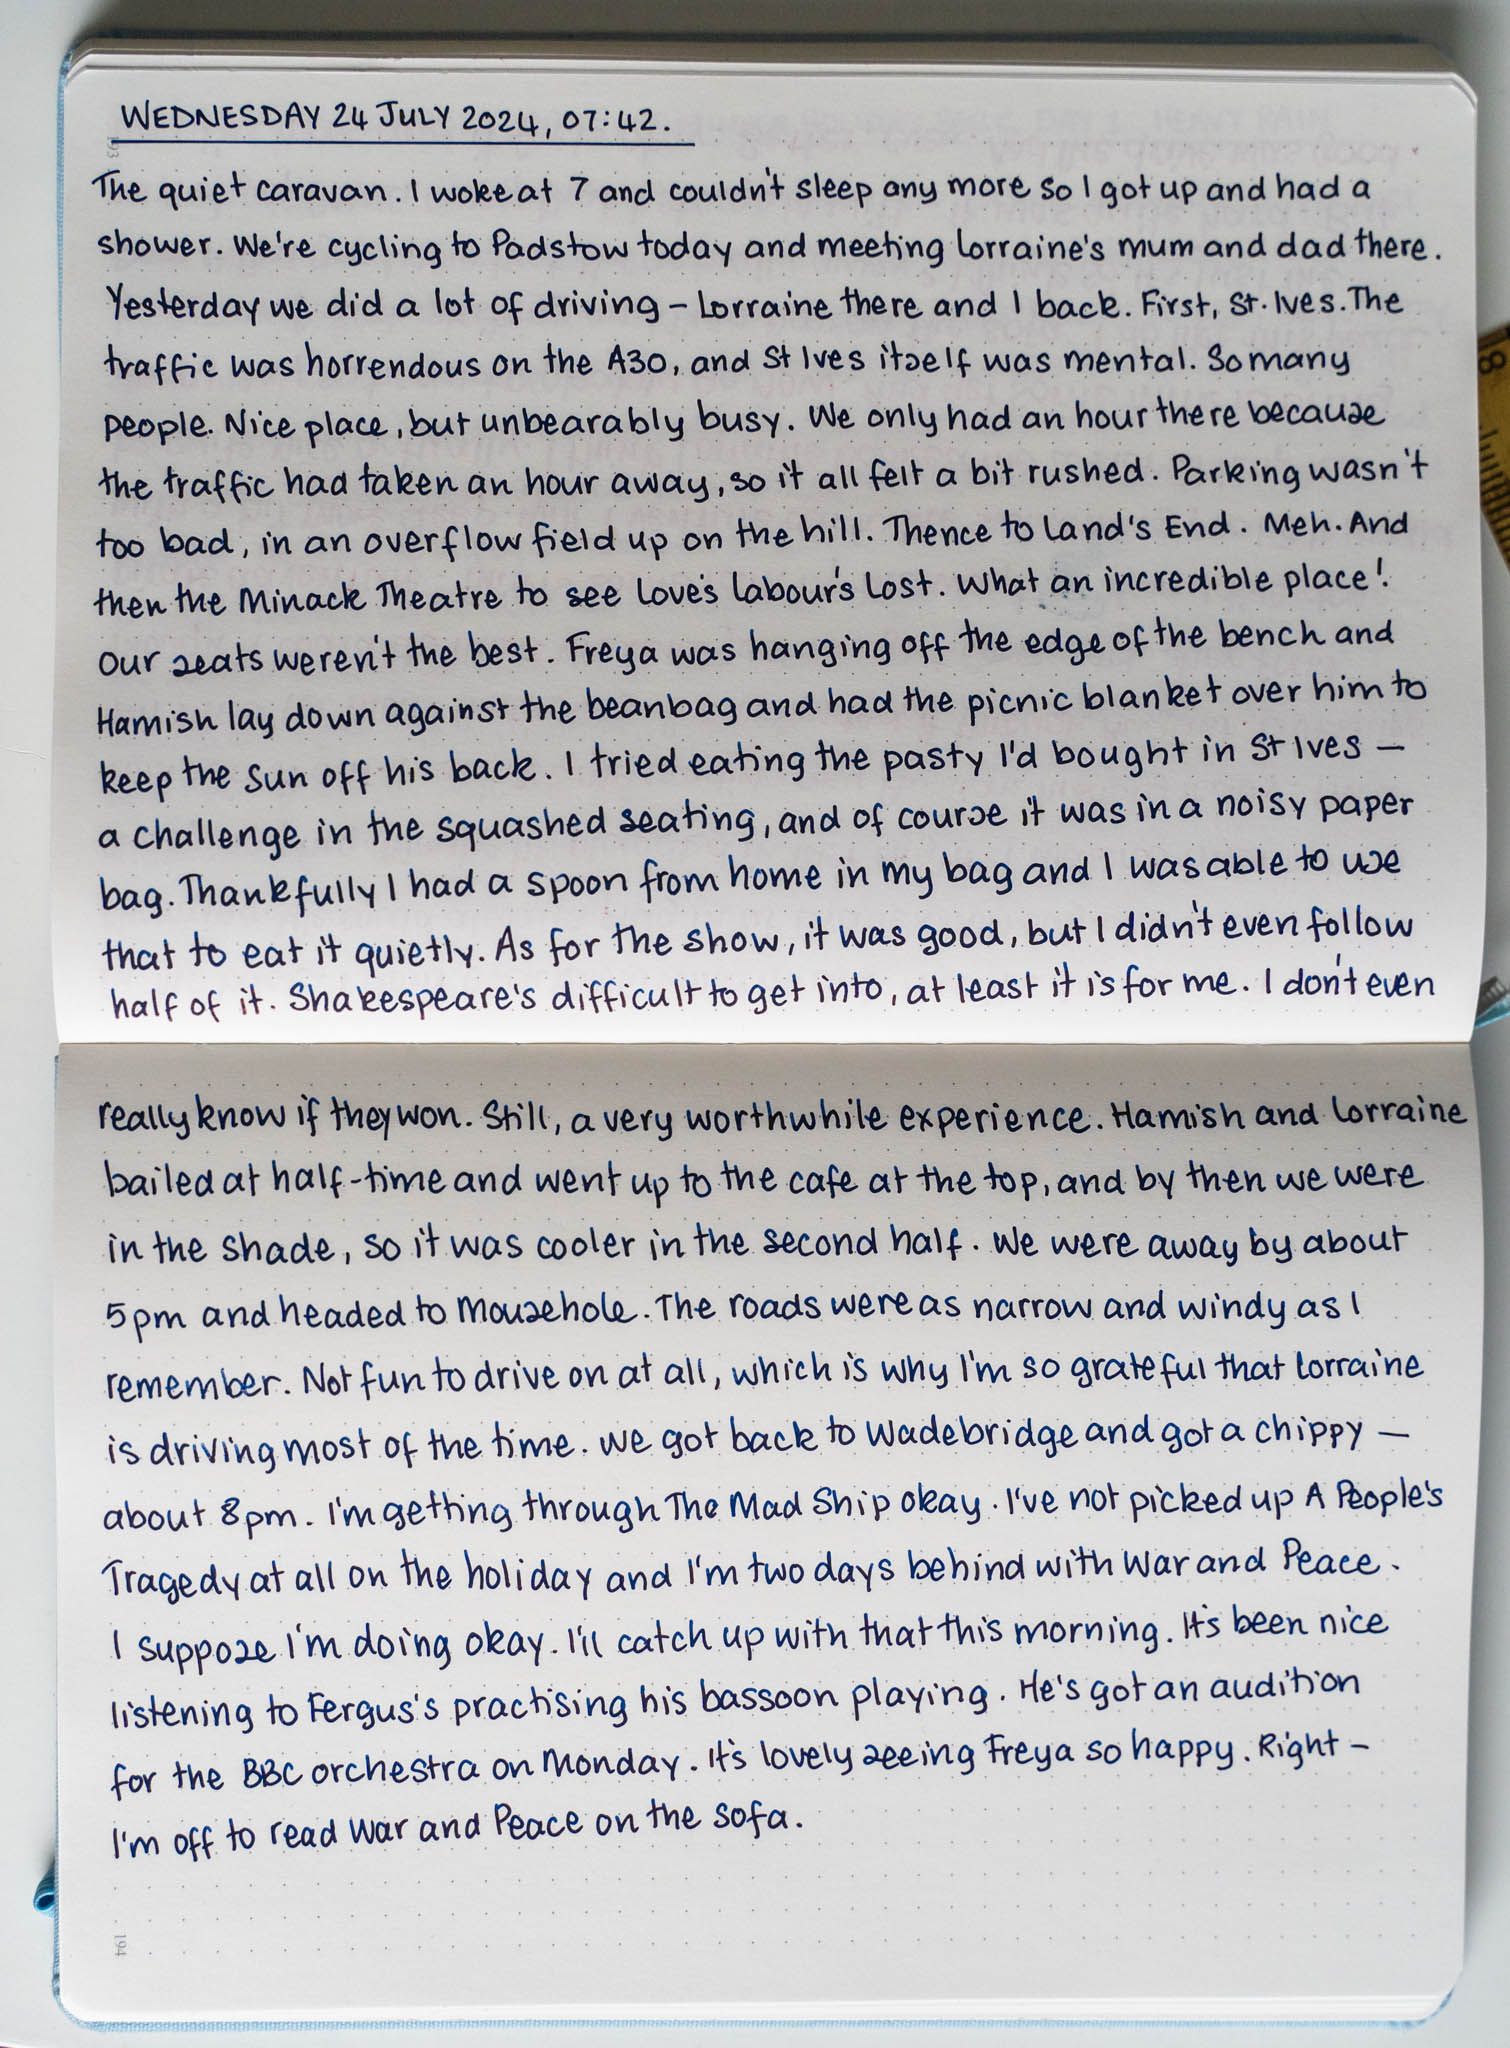 WEDNESDAY 24 JULY 2024, 07:42.
193
The quiet caravan. I woke at 7 and couldn't sleep any more so I got up and had a
shower. We're cycling to Padstow today and meeting Lorraine's mum and dad there.
Yesterday we did a lot of driving – Lorraine there and I back. First, St. Ives. The
traffic was horrendous on the A30, and St Ives itself was mental. So many
people. Nice place, but unbearably busy. We only had an hour there because
the traffic had taken an hour away, so it all felt a bit rushed. Parking wasn't
too bad, in an overflow field up on the hill. Thence to Land's End. Meh. And
then the Minack Theatre to see Love's Labour's Lost. What an incredible place!
Our seats weren't the best. Freya was hanging off the edge of the bench and
Hamish lay down against the beanbag and had the picnic blanket over him to
keep the sun off his back. I tried eating the pasty I'd bought in St Ives –
a challenge in the squashed seating, and of course it was in a noisy paper
bag. Thankfully I had a spoon from home in my bag and I was able to use
that to eat it quietly. As for the show, it was good, but I didn't even follow
half of it. Shakespeare's difficult to get into, at least it is for me. I don't even
really know if they won. Still, a very worthwhile experience. Hamish and Lorraine
bailed at half-time and went up to the cafe at the top, and by then we were
in the shade, so it was cooler in the second half. We were away by about
5pm and headed to Mousehole. The roads were as narrow and windy as I
remember. Not fun to drive on at all, which is why I'm so grateful that Lorraine
is driving most of the time. We got back to Wadebridge and got a chippy –
about 8pm. I'm getting through The Mad Ship okay. I've not picked up A People's
Tragedy at all on the holiday and I'm two days behind with War and Peace.
I suppose I'm doing okay. I'll catch up with that this morning. It's been nice
listening to Fergus's practising his bassoon playing. He's got an audition
for the BBC orchestra on Monday. It's lovely seeing Freya so happy. Right –
I'm off to read War and Peace on the sofa.
194
8